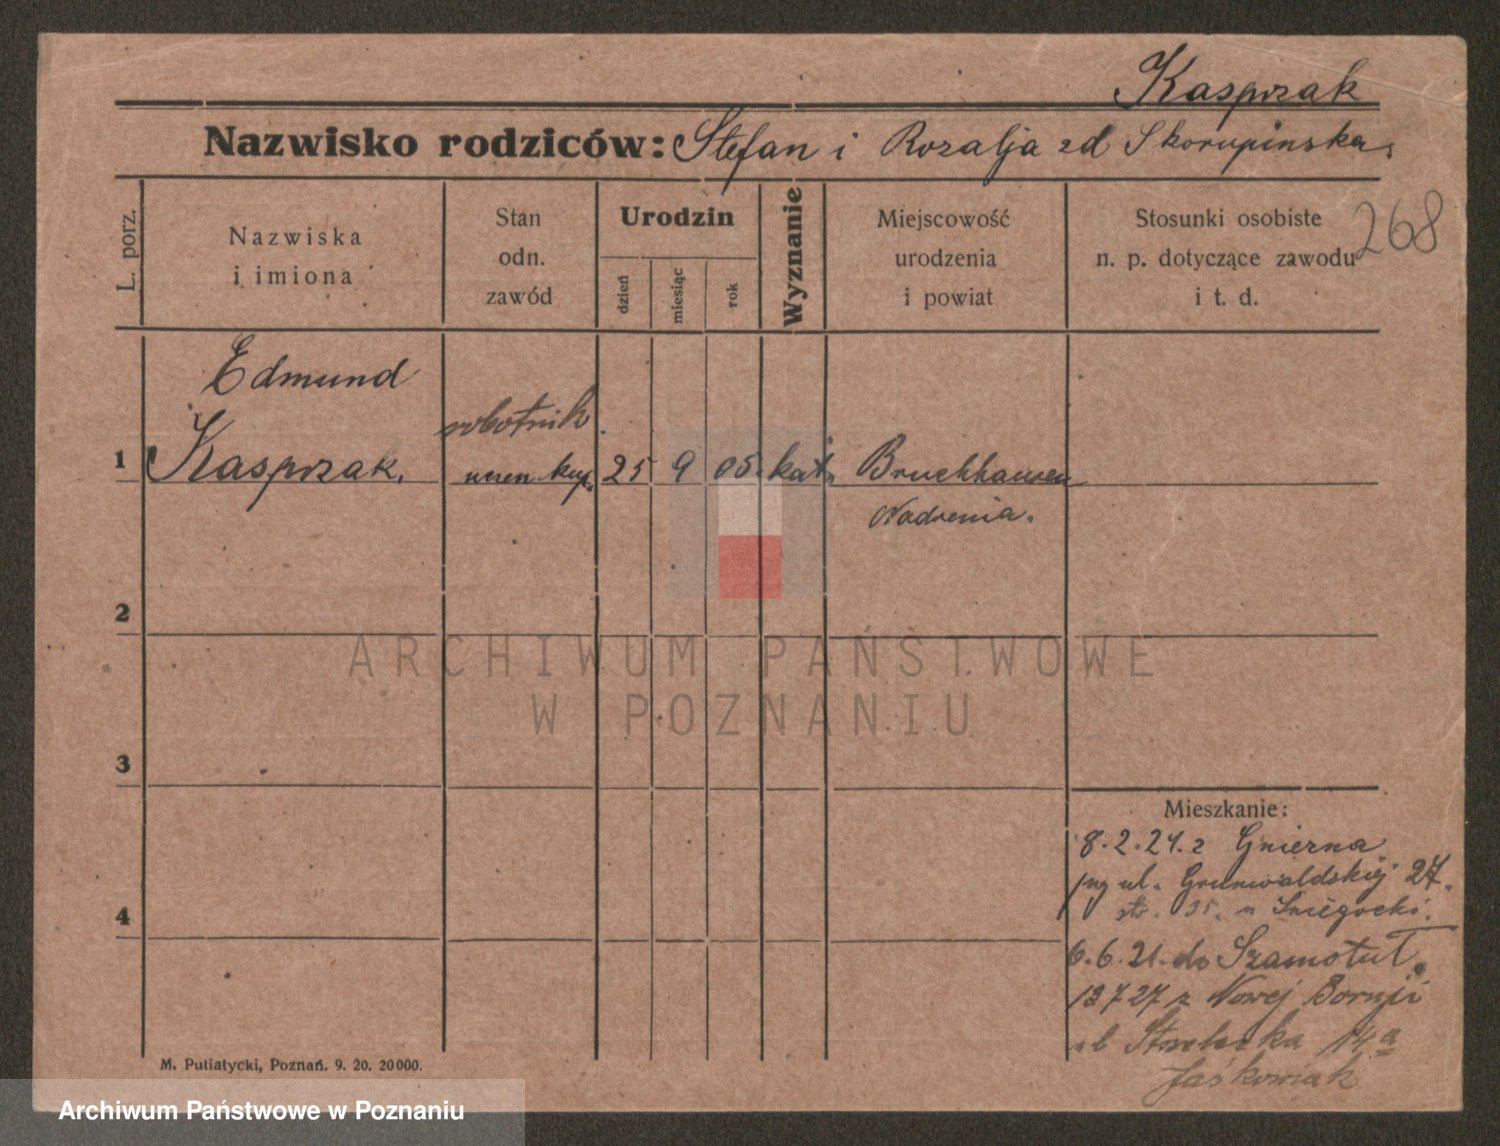 Kasprzak
Nazwisko rodziców: Stefan i Rozalja zd Skorupinska.
268
L. porz.
Nazwiska
i imiona
Stan
odn.
zawód
Urodzin
dzień
miesiąc
rok
Wyznanie
Miejscowość
urodzenia
i powiat
Stosunki osobiste
n. p. dotyczące zawodu
i t. d.
Edmund
robotnik
1 Kasprzak. uczen kup. 25 9 05. kat. Bruchhausen
Nadrenia.
2
3
Mieszkanie:
8.2.21. z Gnierna
ul. Grunwaldskiej 27.
4
str. 35. u Sniegocki.
6.6.21. do Szamotuł.
13 7 27 z Nowej Boruji
ul Strzelecka 14a
Jaśkowiak
M. Putiatycki, Poznań. 9. 20. 20000.
ARCHIWUM PAŃSTWOWE
W POZNANIU
Archiwum Państwowe w Poznaniu